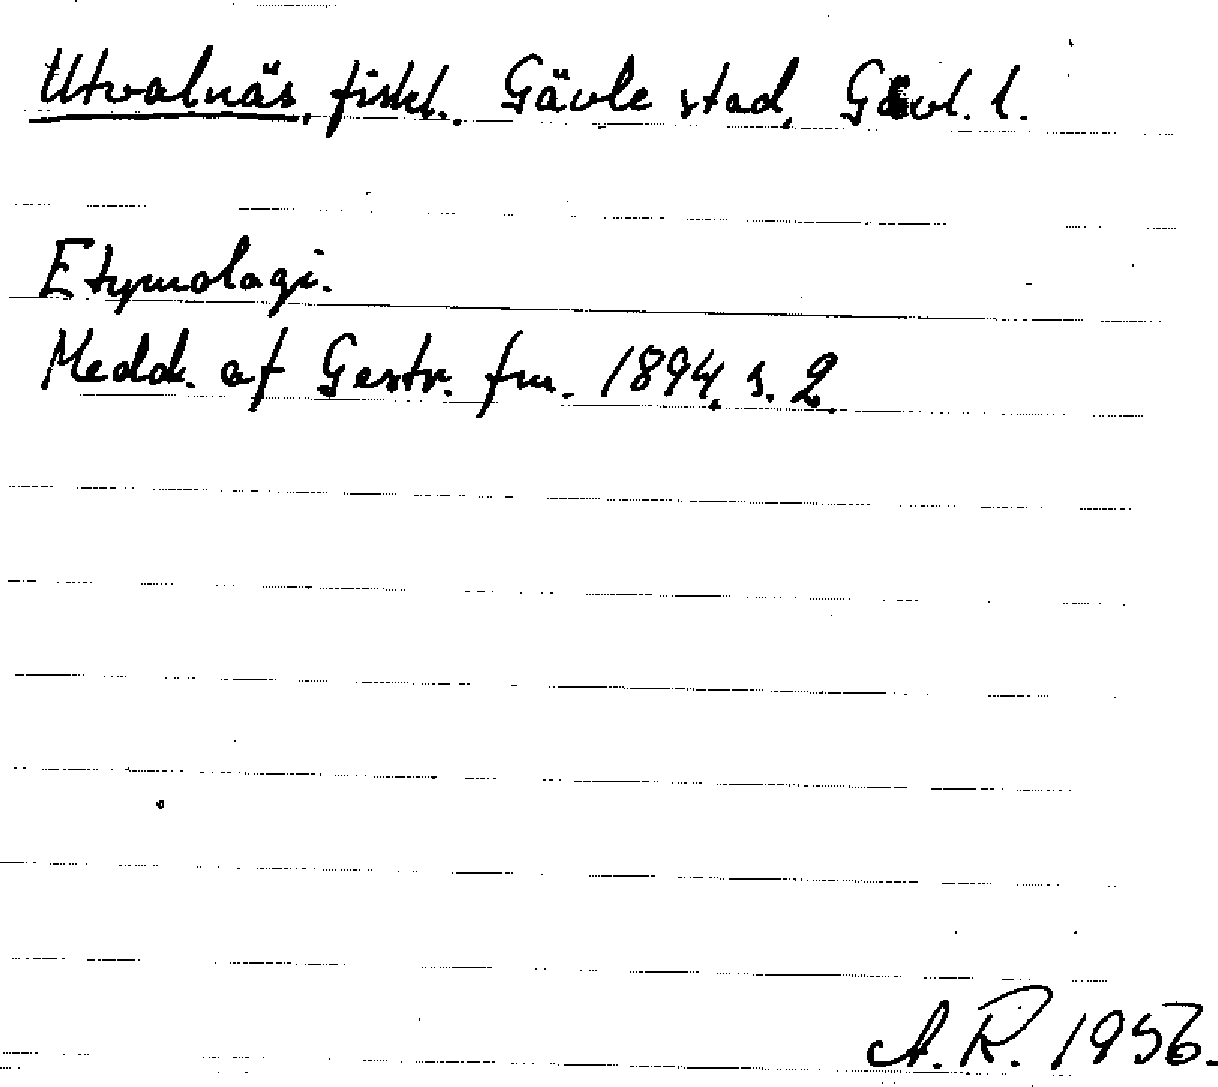 Utvalnäs, fiskl. Gävle stad, Gävl. l.
Etymologi.
Medd. af Gestr. fm. 1894, s. 2.
A. R. 1956.